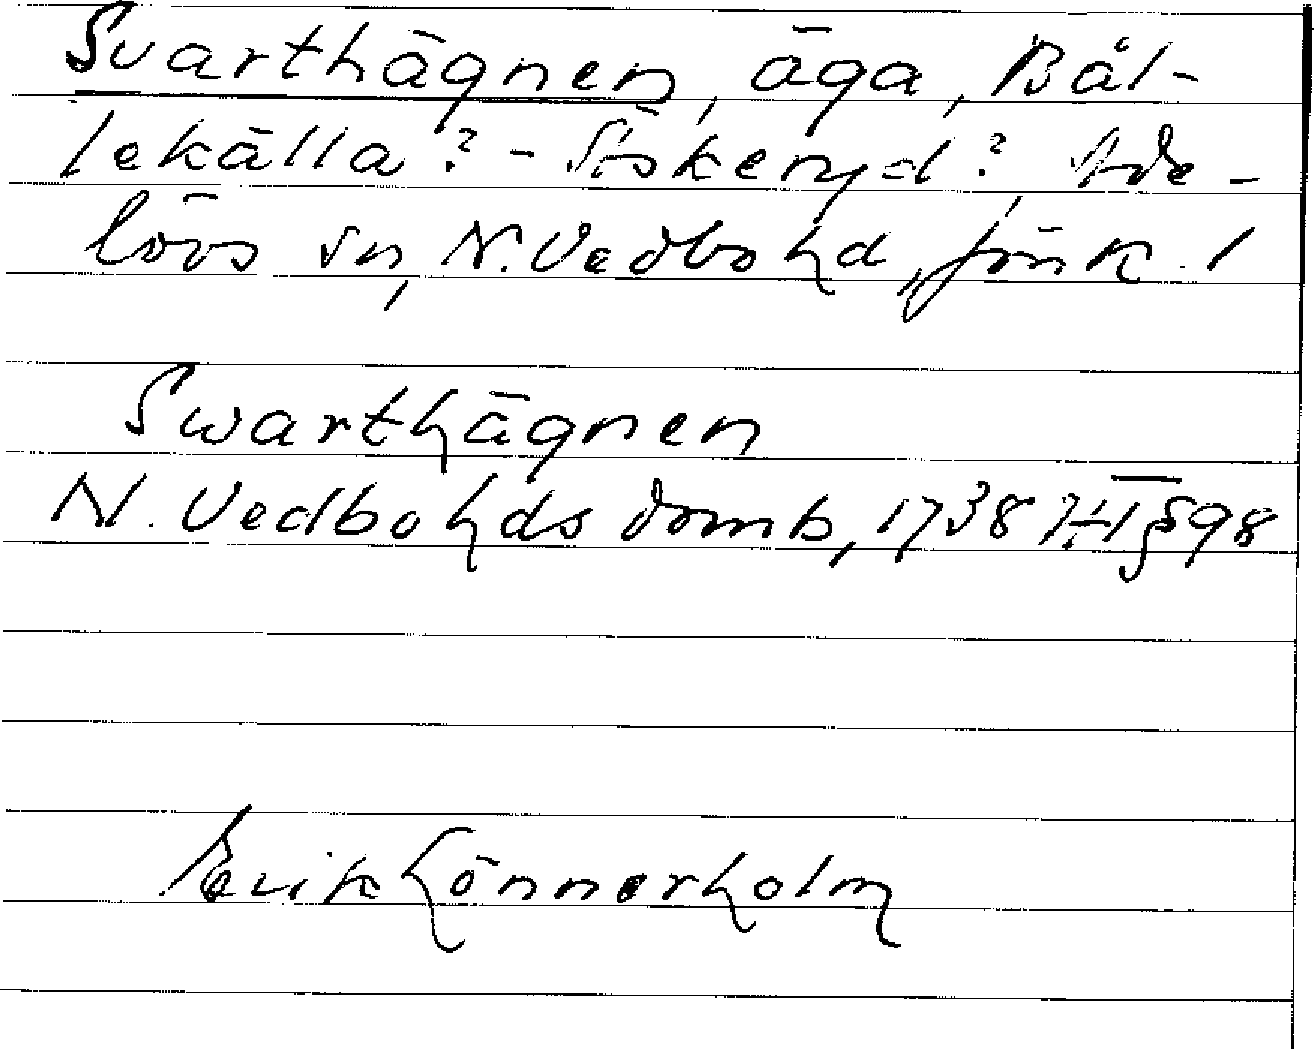 Svarthägnen, äga, Bål-
lekälla? - Stökeryd? Ade-
lövs sn, N. Vedbo hd, Jönk. l
Swarthägnen
N. Vedbo hds domb, 1738 § 98
Erik Hönnerholm